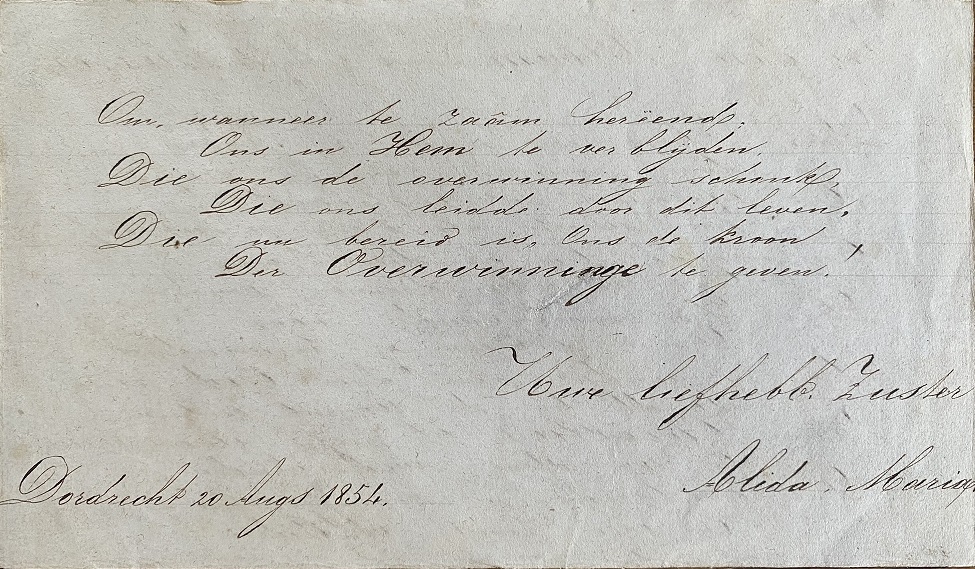 Om, wanneer te zaâm hereend,
Ons in Hem te verblijden
Die ons de overwinning schonk,
Die ons leidde door dit leven,
Die nu bereid is, Ons de kroon,
Der Overwinninge te geven!
Uwe liefhebb. Zuster
Alida Maria
Dordrecht 20 Augs 1854.